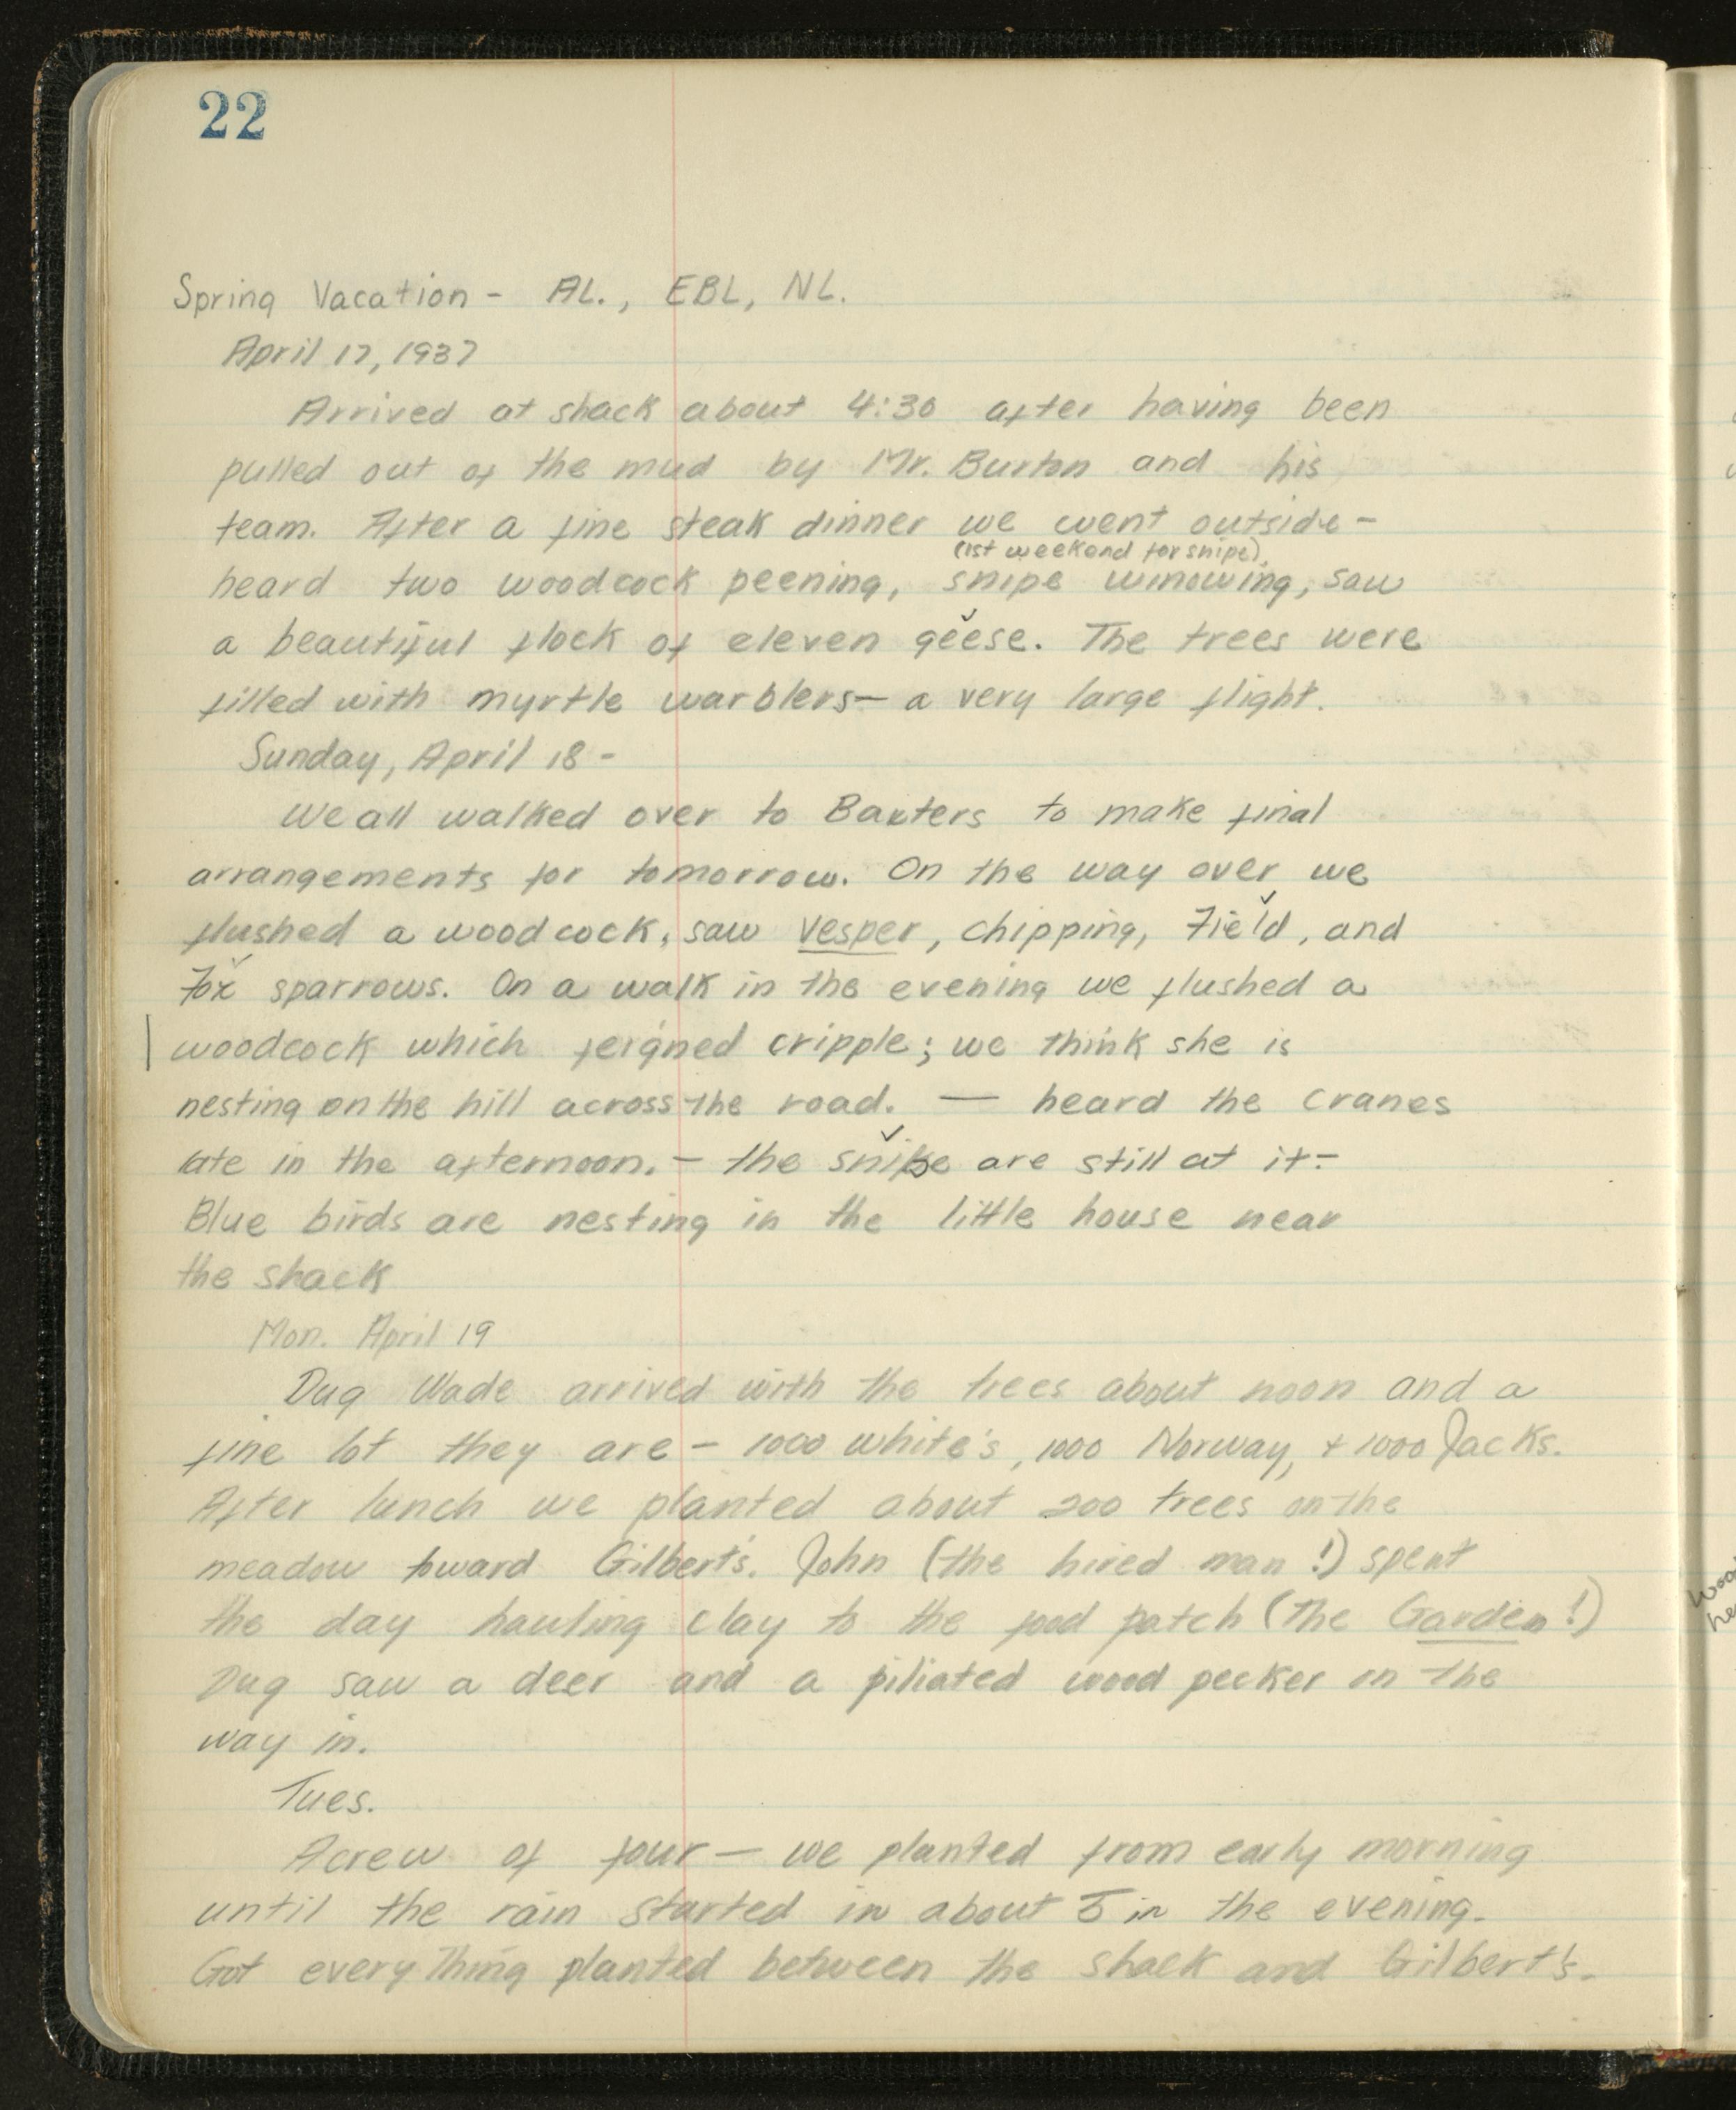 22
Spring Vacation - AL., EBL, NL.
April 17, 1937
Arrived at shack about 4:30 after having been
pulled out of the mud by Mr. Burton and his
team. After a fine steak dinner we went outside -
(1st weekend for snipe),
heard two woodcock peening, snipe winowing, saw
a beautiful flock of eleven geese. The trees were
filled with myrtle warblers — a very large flight.
Sunday, April 18 -
We all walked over to Baxters to make final
arrangements for tomorrow. On the way over we
flushed a woodcock, saw vesper, chipping, Field, and
Fox sparrows. On a walk in the evening we flushed a
woodcock which feigned cripple; we think she is
nesting on the hill across the road. — heard the cranes
late in the afternoon. - the snipe are still at it -
Blue birds are nesting in the little house near
the shack
Mon. April 19
Dug Wade arrived with the trees about noon and a
fine lot they are - 1000 white's, 1000 Norway, + 1000 Jacks.
After lunch we planted about 200 trees on the
meadow toward Gilbert's. John (the hired man!) spent
the day hauling clay to the food patch (the Garden!)
Dug saw a deer and a piliated wood pecker on the
way in.
Tues.
A crew of four — we planted from early morning
until the rain started in about 5 in the evening.
Got every thing planted between the shack and Gilbert's.